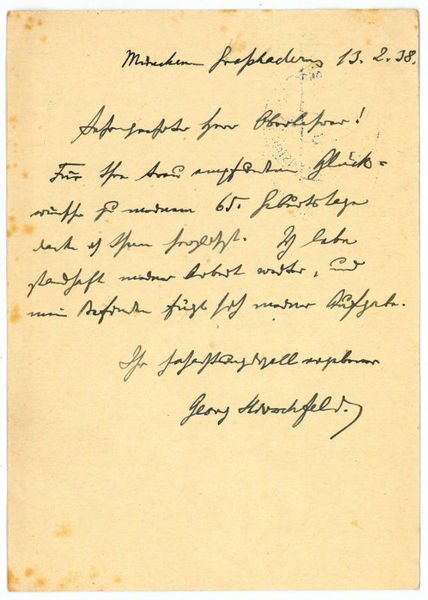 München Großhadern 13.2.38.
Sehr geehrter Herr Oberlehrer!
Für Ihre treu empfundenen Glück-
wünsche zu meinem 65. Geburtstage
danke ich Ihnen herzlichst. Ich lebe
standhaft meiner Arbeit weiter, und
mein Befinden fügt sich meiner Aufgabe.
Ihr hochachtungsvoll ergebener
Georg Hirschfeld.